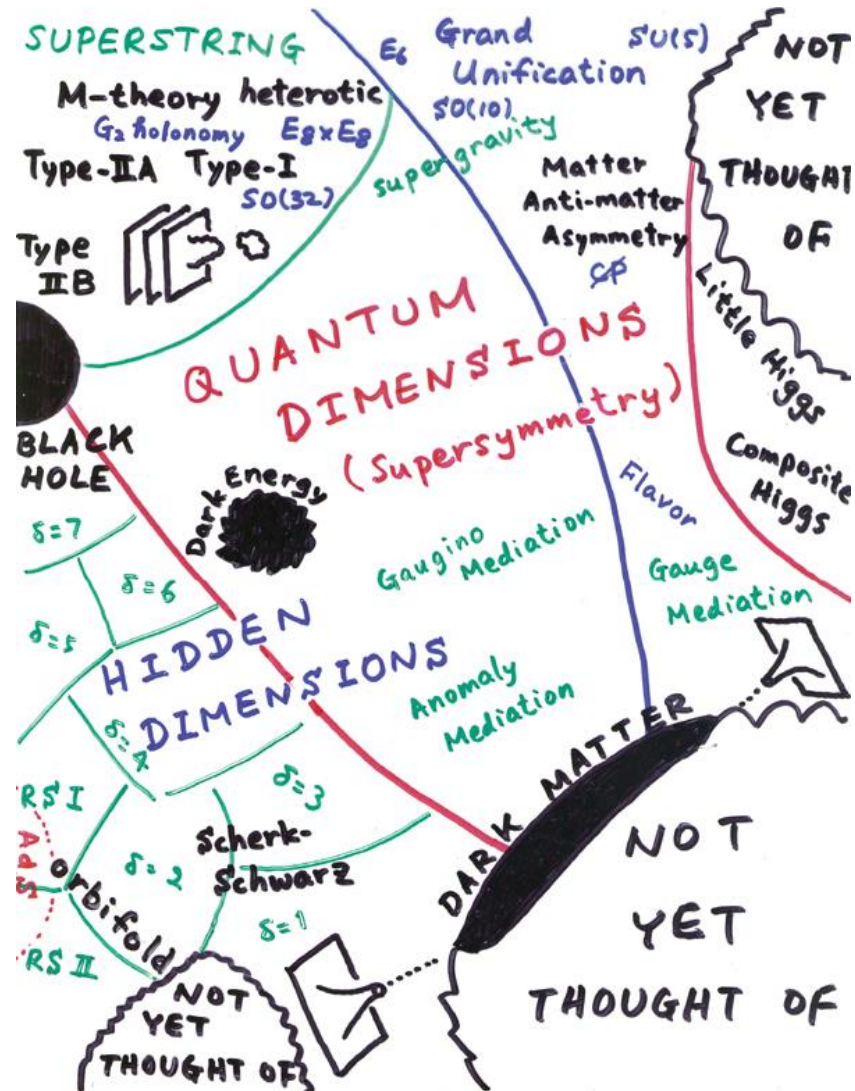 SUPERSTRING
M-theory heterotic
G₂ holonomy E8×E8
Type-IIA Type-I
SO(32)
Type
IIB
E₆
Grand
Unification
SU(5)
SO(10)
supergravity
Matter
Anti-matter
Asymmetry
CP
NOT
YET
THOUGHT
OF
Little Higgs
Composite
Higgs
QUANTUM
DIMENSIONS
(Supersymmetry)
BLACK
HOLE
Dark Energy
Flavor
Gaugino
Mediation
Gauge
Mediation
Anomaly
Mediation
δ=7
δ=6
δ=5
HIDDEN
DIMENSIONS
δ=4
δ=3
RS I
AdS
orbifold
δ=2
Scherk-
Schwarz
δ=1
RS II
DARK MATTER
NOT
YET
THOUGHT OF
NOT
YET
THOUGHT OF